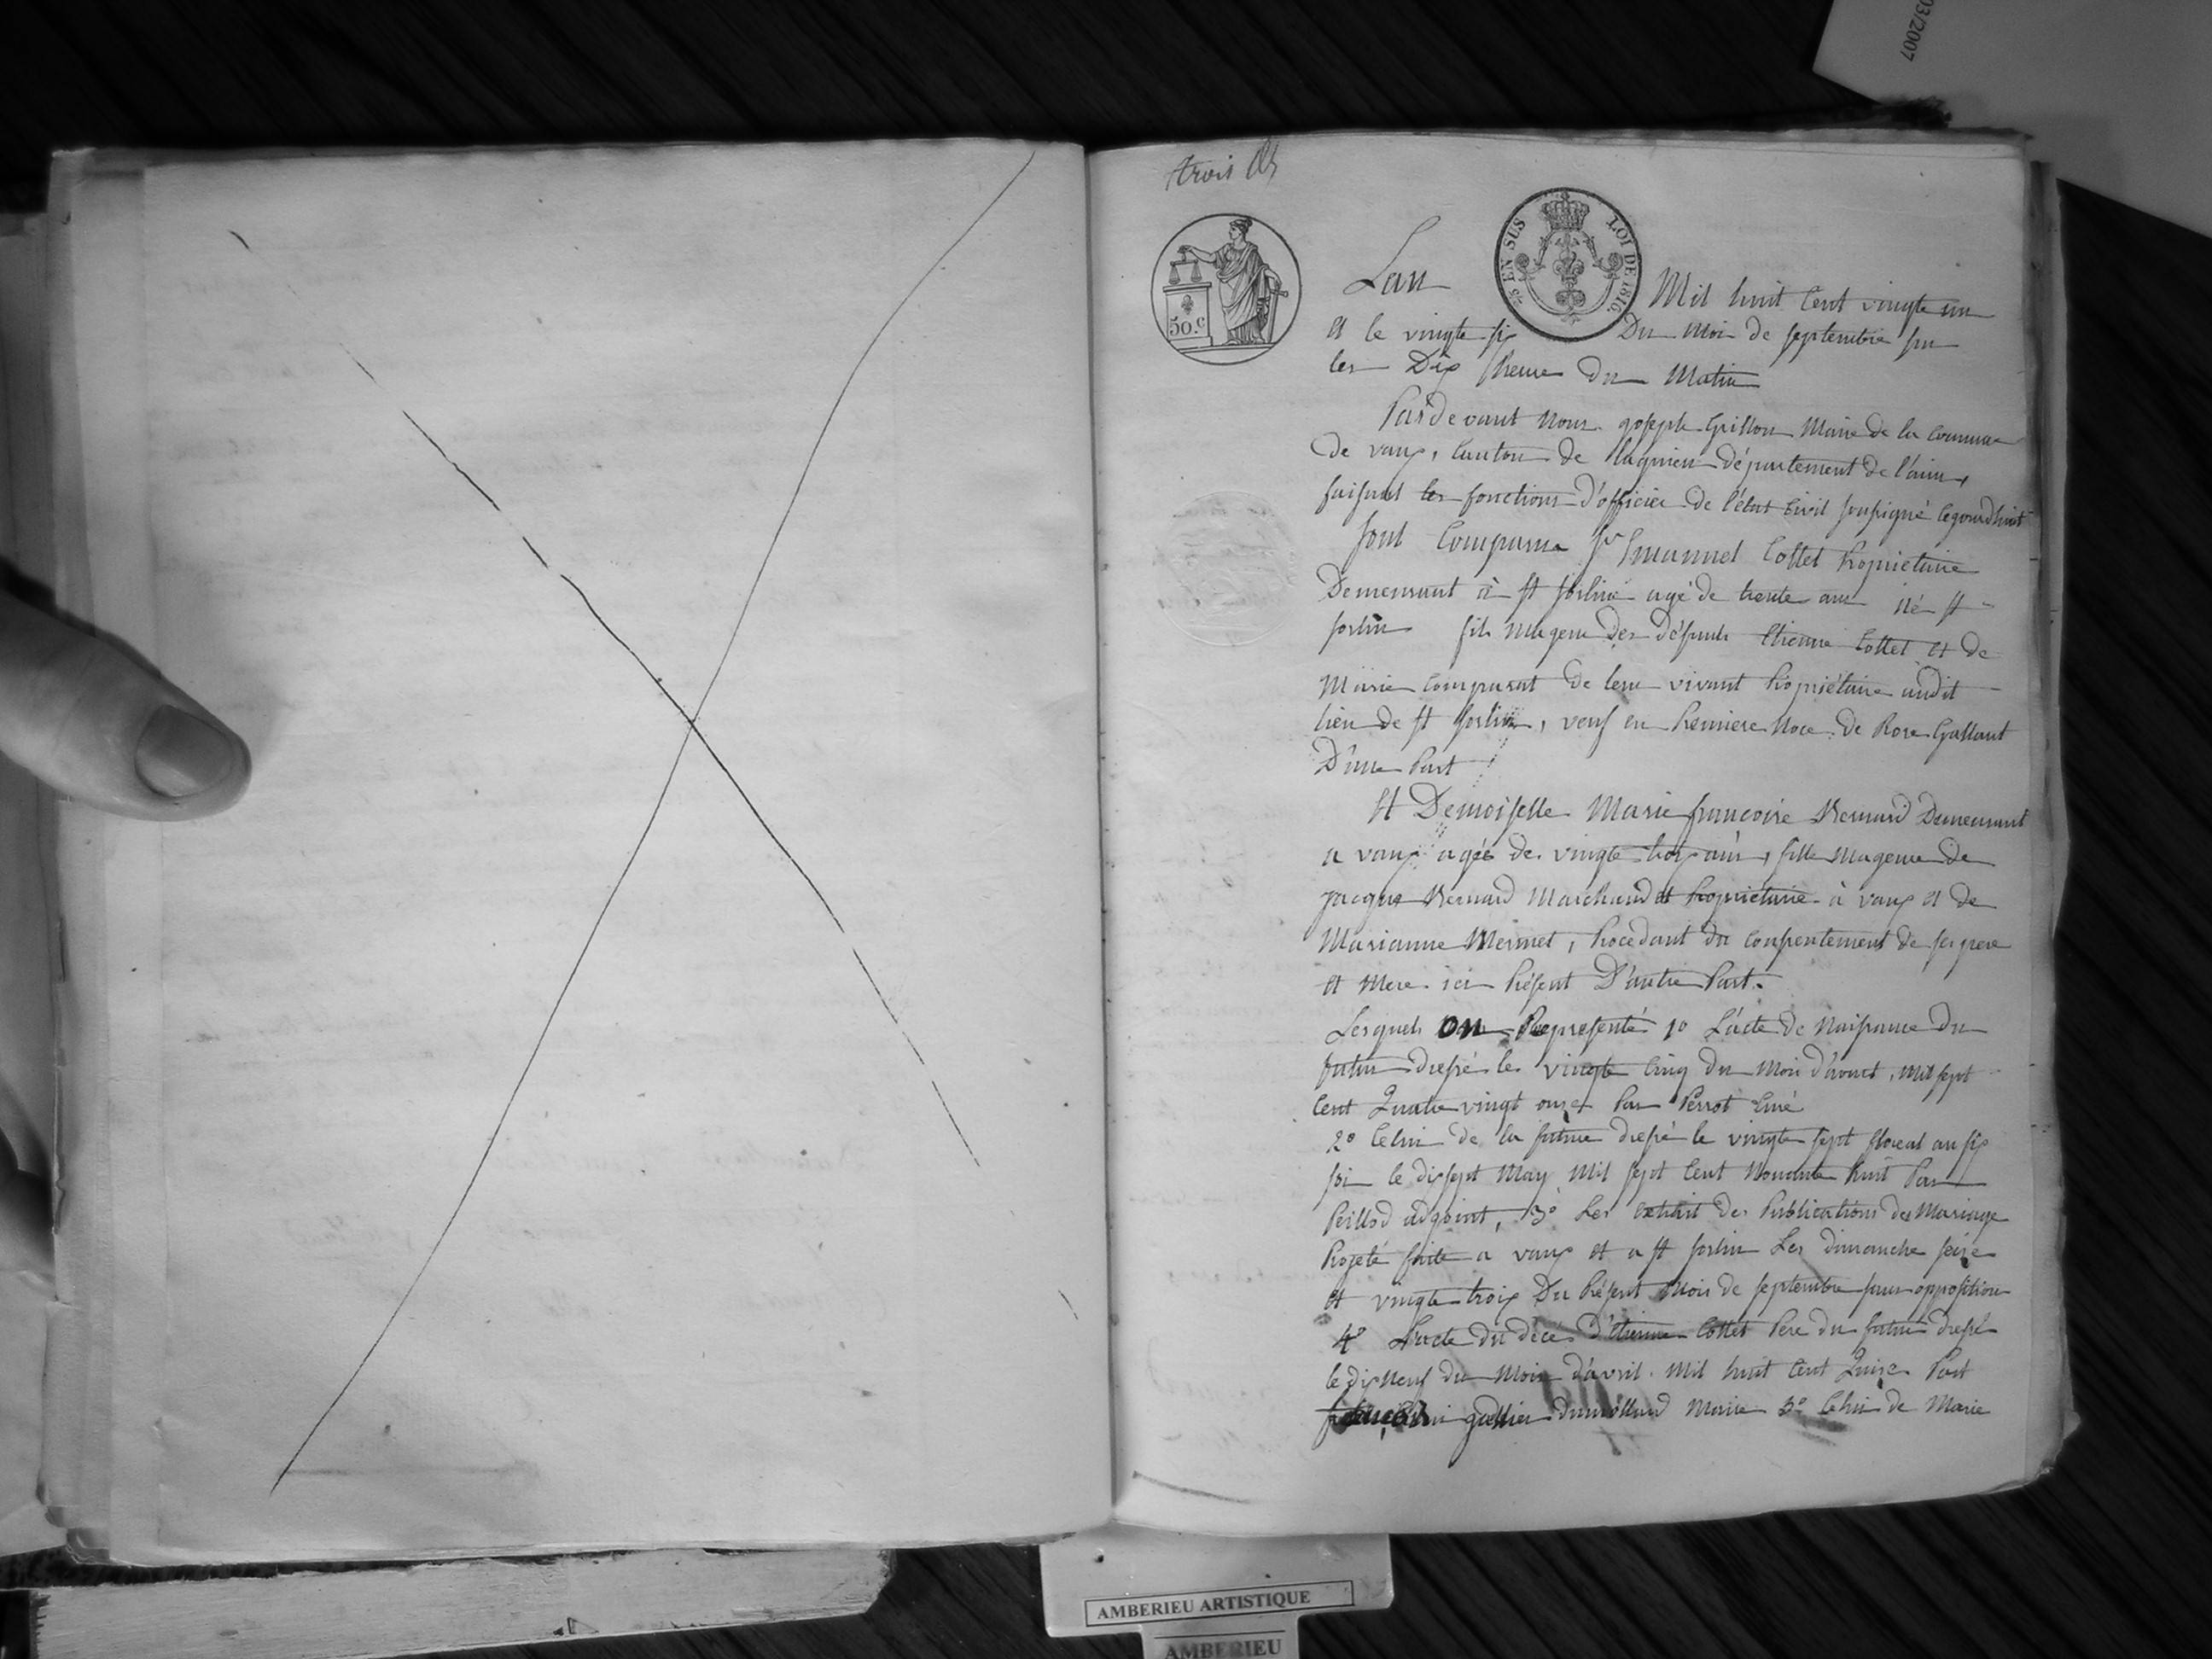 03/2007
trois
50.c
EN SUS LOI DE 1816.
Lan Mil huit Cent vingte un
et le vingte six Du Moi de septembre sur
les Dix heure du Matin
Pardevant Nous joseph Grillon Maire de la Commune
de vaux, Canton de lagnieu département de l'ain,
faisant les fonctions d'officier de l'état Civil soussigné
sont Comparus sr Emanuel Collet Propriétaire
Demeurant à st sorlin agé de trente ans né st
sorlin fils Mageur des défunts Etienne Collet et de
Marie Comparat de leur vivant Propriétaire audit
lieu de st sorlin, veuf en Premiere Noce de Rose Gallant
D'une Part
et Demoiselle Marie francoise Bernard Demeurant
a vaux agée de vingte trois ans, fille Mageure de
jacque Bernard Marchand et Propriétaire à vaux et de
Marianne Mermet, Procédant du Consentement de ses pere
et Mere ici Présent D'autre Part.
Lesquels on Représenté 1º L'acte de Naissance du
futur dressé le vingte Cinq du Mois d'aoust, Mil sept
Cent Quatre vingt onze Par Perrot Curé
2º Celui de la future dressé le vingte sept floreal an six
soi le dix sept May Mil sept Cent Nonante huit Par
Peillod adjoint, 3º Les extrait des Publications des Mariage
Projeté faite a vaux et a st sorlin Les dimanche seize
et vingte trois Du Présent Mois de septembre sans opposition
4º L'acte du décès d'étienne Collet Pere du futur dressé
le dix Neuf du Mois d'avril Mil huit Cent Quinze Part
Maire 5º Celui de Marie
AMBERIEU ARTISTIQUE
AMBERIEU